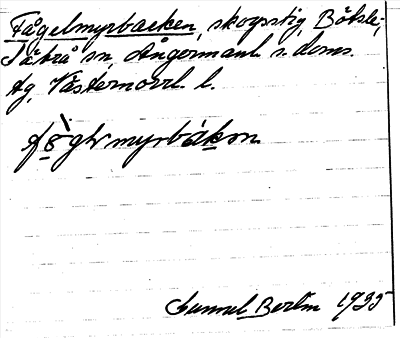 Fågelmyrbacken, skogsstig, Bölsle,
Säbrå sn, Ångermanl s. doms.
Hg, Västernorrl. l.
fògLmyrbákən
Samuel Berlin 1935